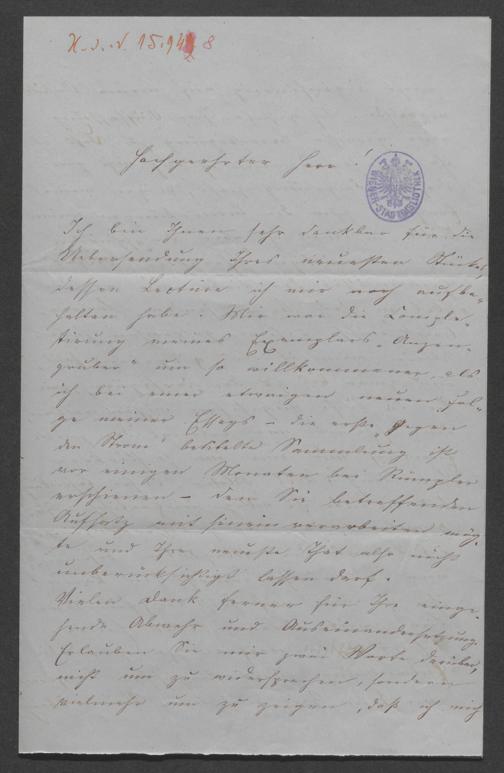 H. I. N. 15.948
Hochgeehrter Herr!
WIENER STADTBIBLIOTHEK
Ich bin Ihnen sehr dankbar für die
Uebersendung Ihres neuesten Stückes,
dessen Lectüre ich mir noch aufbe-
halten habe. Mir war die Comple-
tirung meines Exemplars „Anzen-
gruber" um so willkommener, als
ich bei einer etwaigen neuen Fol-
ge meiner Essays – die erste „Gegen
den Strom" betitelte Sammlung ist
vor einigen Monaten bei Rümpler
erschienen – den Sie betreffenden
Aufsatz mit hinein verarbeiten möch-
te und Ihre neueste That also nicht
unberücksichtigt lassen darf.
Vielen Dank ferner für Ihre einge-
hende Abwehr und Auseinandersetzung.
Erlauben Sie mir zwei Worte darüber,
nicht um zu widersprechen, sondern
vielmehr um zu zeigen, daß ich mich